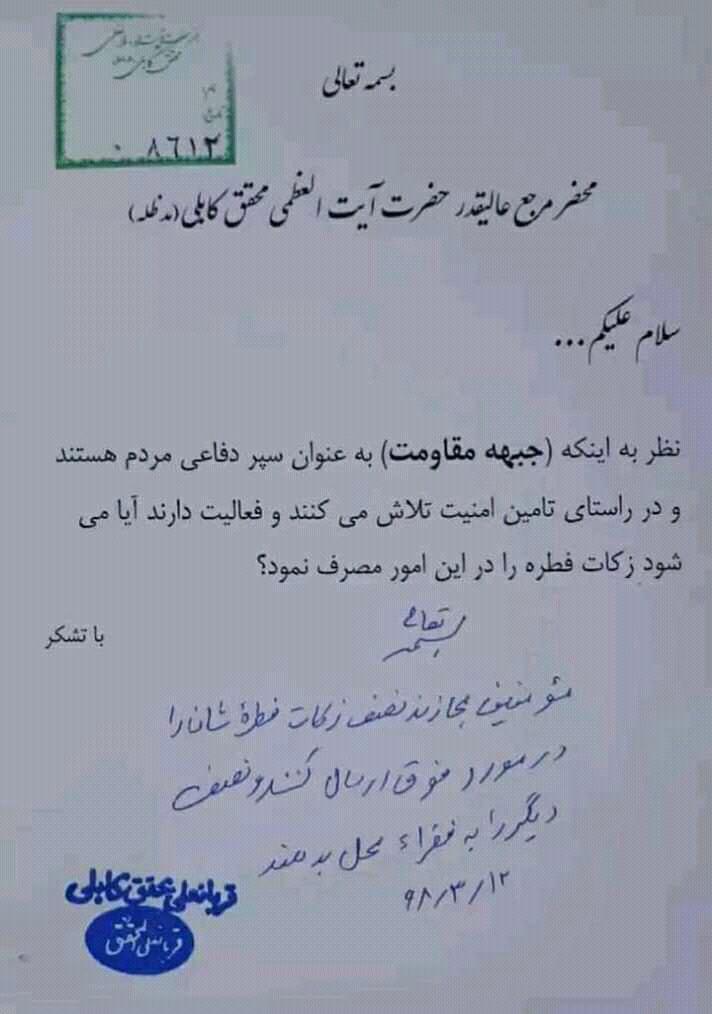 محقق کابلی
۰۸۶۱۲
بسمه تعالی
محضر مرجع عالیقدر حضرت آیت العظمی محقق کابلی (مدظله)
سلام علیکم...
نظر به اینکه (جبهه مقاومت) به عنوان سپر دفاعی مردم هستند
و در راستای تامین امنیت تلاش می کنند و فعالیت دارند آیا می
شود زکات فطره را در این امور مصرف نمود؟
با تشکر
بسمه تعالی
مؤمنین مجازند نصف زکات فطرهٔ شان را
در مورد فوق ارسال کنند و نصف
دیگر را به فقراء محل بدهند
۹۸/۳/۱۲
قربانعلی محقق کابلی
قربانعلی المحقق